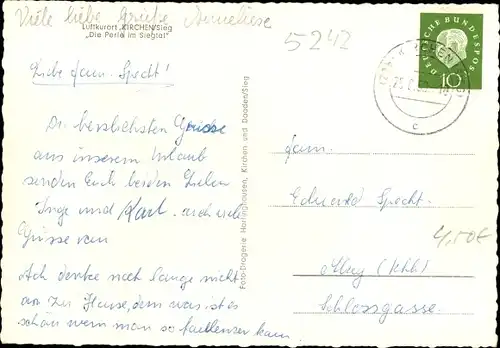 Viele liebe Grüße Anneliese
Luftkurort KIRCHEN/Sieg
"Die Perle im Siegtal"
5242
DEUTSCHE BUNDESPOST
10
KIRCHEN
c
Liebe Fam. Specht!
Die herzlichsten Grüsse
aus unserem Urlaub
senden Euch beiden Lieben
Inge und Karl. auch viele
Grüsse von
Ach denke noch lange nicht
an zu Hause, denn was ist es
schön wenn man so faullenzen kann
Foto-Drogerie Häringhausen, Kirchen und Daaden/Sieg
Fam.
Eduard Specht.
4,50€
Schlossgasse.